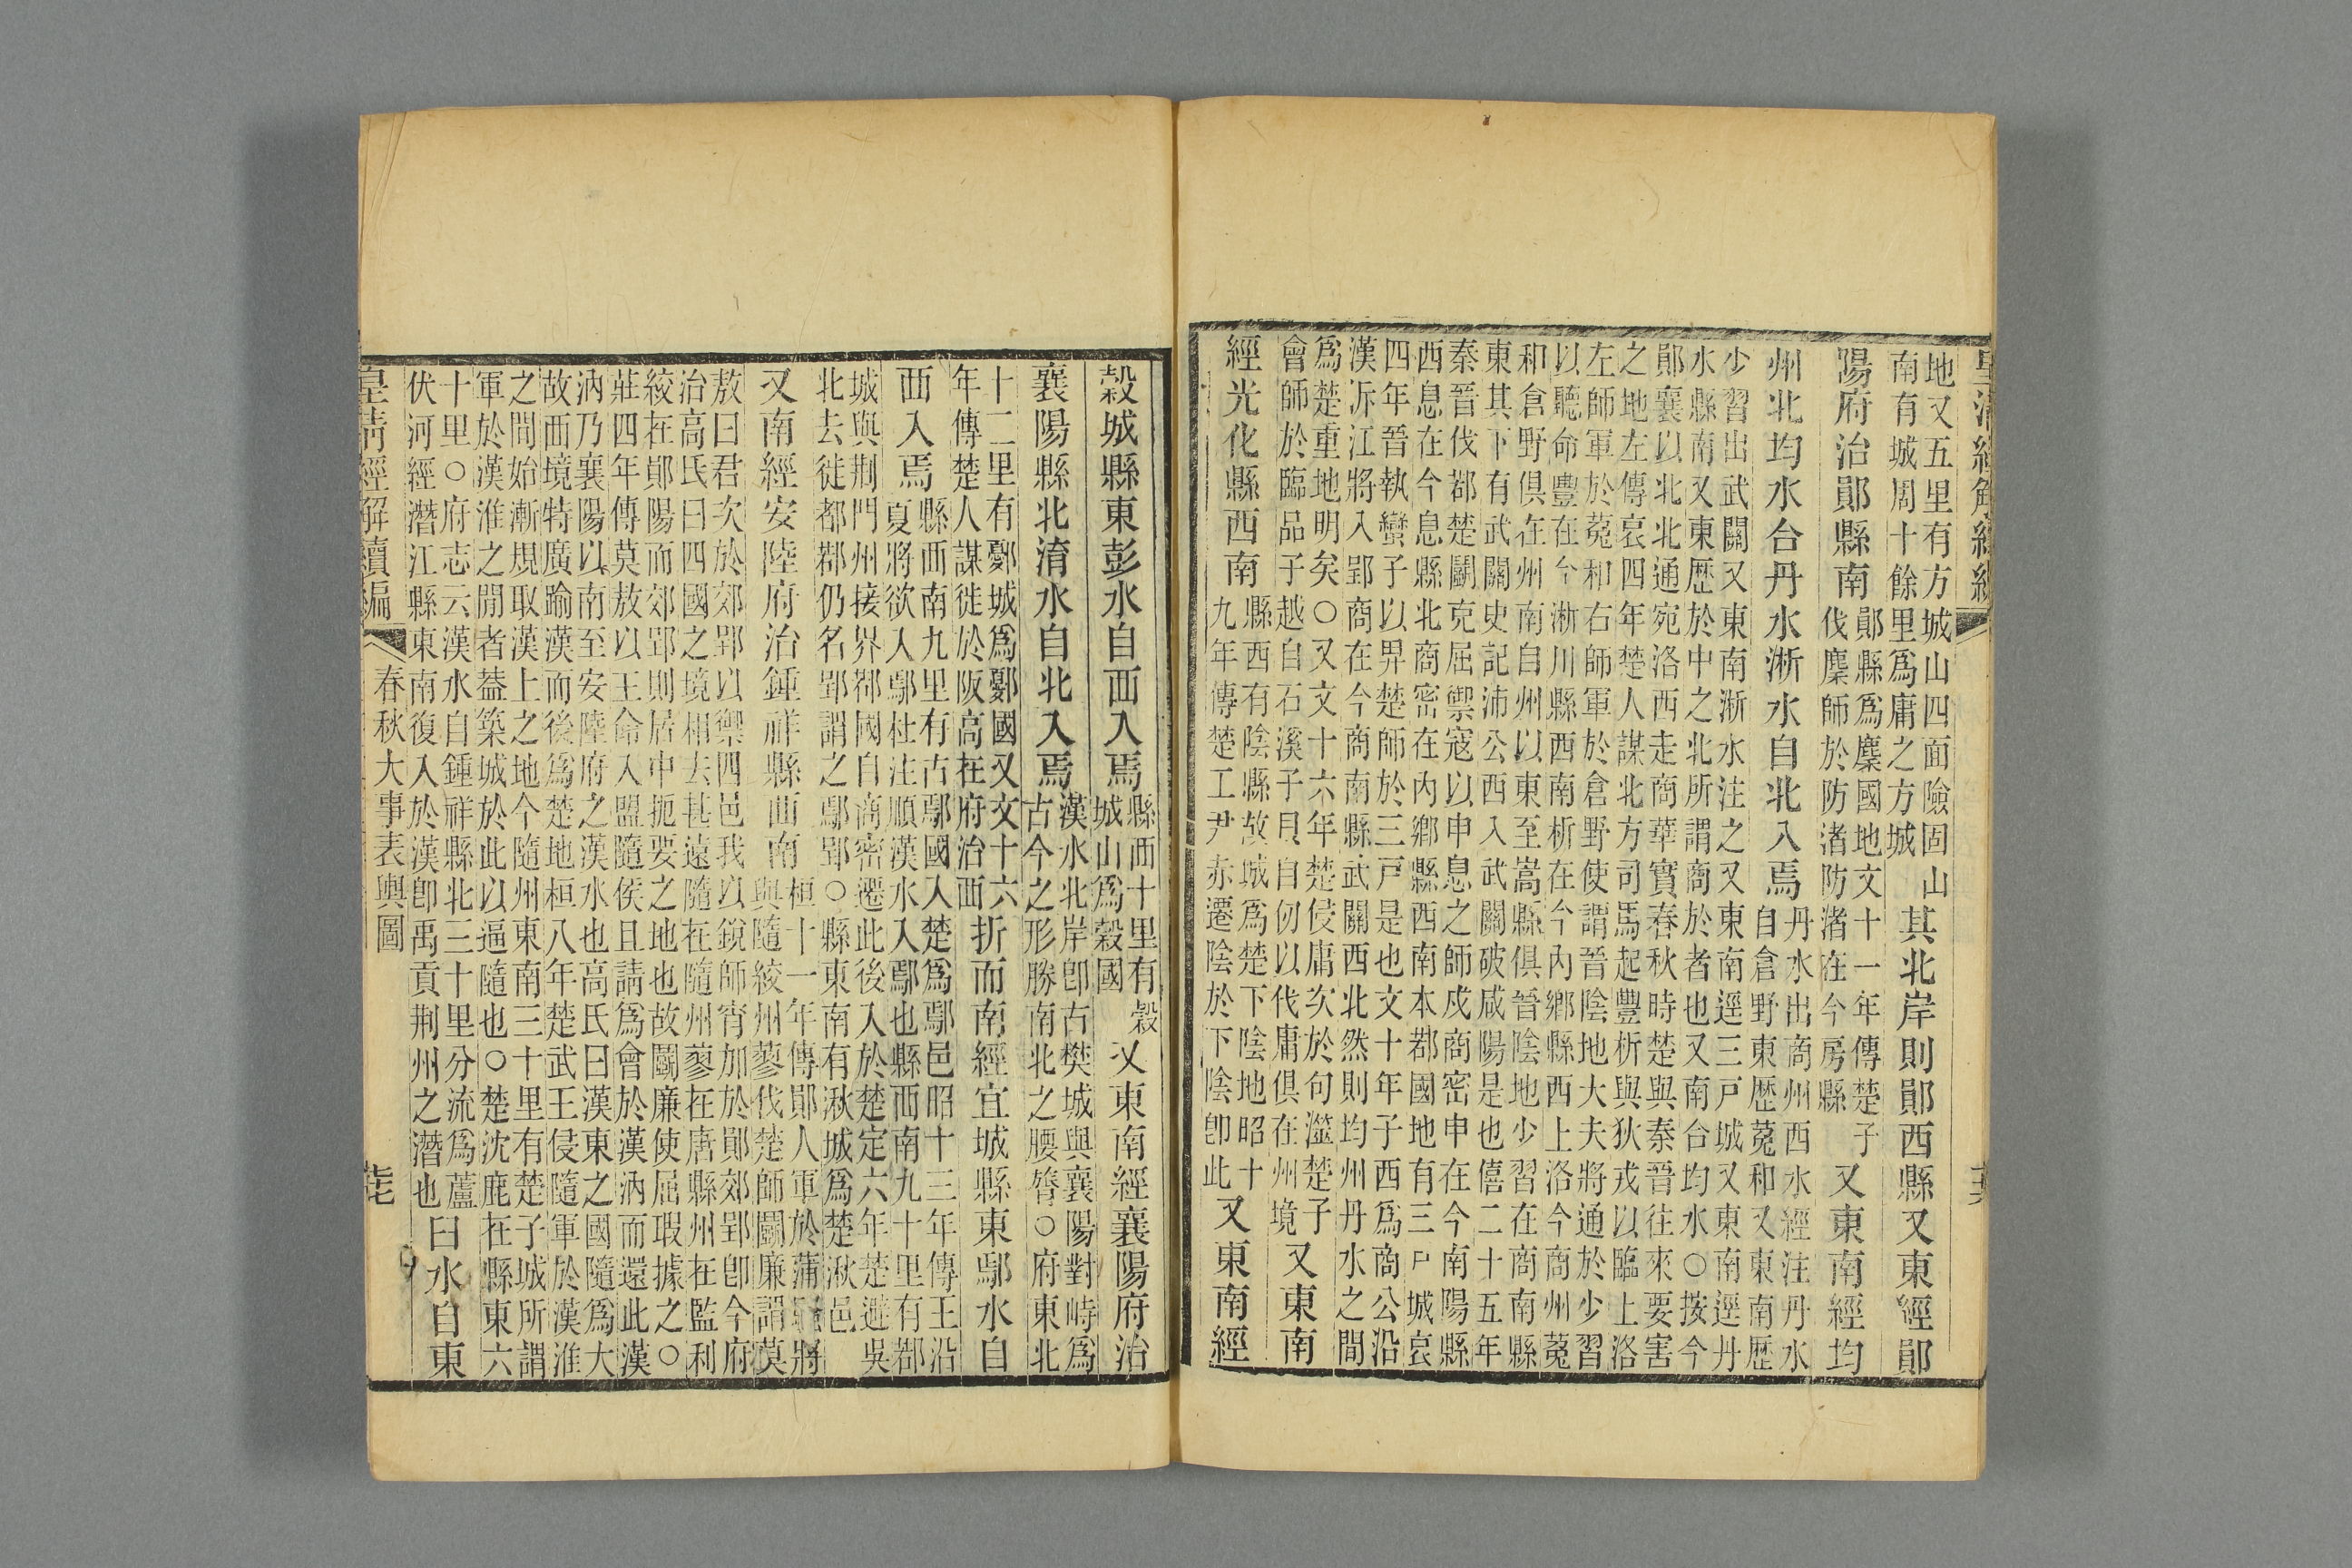 皇清經解續編
地又五里有方城山四面險固山
南有城周十餘里爲庸之方城
其北岸則鄖西縣又東經鄖
陽府治鄖縣南
鄖縣爲麇國地文十一年傳楚子
伐麇師於防渚防渚在今房縣
又東南經均
州北均水合丹水淅水自北入焉
丹水出商州西水經注丹水
自倉野東歷菟和又東南歷
少習出武關又東南淅水注之又東南逕三戸城又東南逕丹
水縣南又東歷於中之北所謂商於者也又南合均水○按今
鄖襄以北北通宛洛西走商華實春秋時楚與秦晉往來要害
之地左傳哀四年楚人謀北方司馬起豐析與狄戎以臨上洛
左師軍於菟和右師軍於倉野使謂晉陰地大夫將通於少習
以聽命豐在今淅川縣西南析在今內鄉縣西上洛今商州菟
和倉野俱在州南自州以東至嵩縣俱晉陰地少習在商南縣
東其下有武關史記沛公西入武關破咸陽是也僖二十五年
秦晉伐鄀楚鬭克屈禦寇以申息之師戍商密申在今南陽縣
西息在今息縣北商密在內鄉縣西南本鄀國地有三戸城哀
四年晉執蠻子以畀楚師於三戸是也文十年子西爲商公沿
漢泝江將入郢商在今商南縣武關西北然則均州丹水之間
爲楚重地明矣○又文十六年楚侵庸次於句澨楚子
會師於臨品子越自石溪子貝自仞以伐庸俱在州境
又東南
經光化縣西南
縣西有陰縣故城爲楚下陰地昭十
九年傳楚工尹赤遷陰於下陰卽此
又東南經
穀城縣東彭水自西入焉
縣西十里有穀
城山爲穀國
又東南經襄陽府治
襄陽縣北淯水自北入焉
漢水北岸卽古樊城與襄陽對峙爲
古今之形勝南北之腰膂○府東北
十二里有鄾城爲鄾國又文十六
年傳楚人謀徙於阪高在府治西
折而南經宜城縣東鄢水自
西入焉
縣西南九里有古鄢國入楚爲鄢邑昭十三年傳王沿
夏將欲入鄢杜注順漢水入鄢也縣西南九十里有鄀
城與荆門州接界鄀國自商密遷此後入於楚定六年楚避吳
北去徙都鄀仍名郢謂之鄢郢○縣東南有湫城爲楚湫邑
又南經安陸府治鍾祥縣西南
桓十一年傳鄖人軍於蒲騷將
與隨絞州蓼伐楚師鬭廉謂莫
敖曰君次於郊郢以禦四邑我以銳師宵加於鄖郊郢卽今府
治高氏曰四國之境相去甚遠隨在隨州蓼在唐縣州在監利
絞在鄖陽而郊郢則居中扼要之地也故鬭廉使屈瑕據之○
莊四年傳莫敖以王命入盟隨侯且請爲會於漢汭而還此漢
汭乃襄陽以南至安陸府之漢水也高氏曰漢東之國隨爲大
故西境特廣踰漢而後爲楚地桓八年楚武王侵隨軍於漢淮
之間始漸規取漢上之地今隨州東南三十里有楚子城所謂
軍於漢淮之閒者葢築城於此以逼隨也○楚沈鹿在縣東六
十里○府志云漢水自鍾祥縣北三十里分流爲蘆
伏河經潛江縣東南復入於漢卽禹貢荆州之潛也
臼水自東
皇清經解續編
春秋大事表輿圖